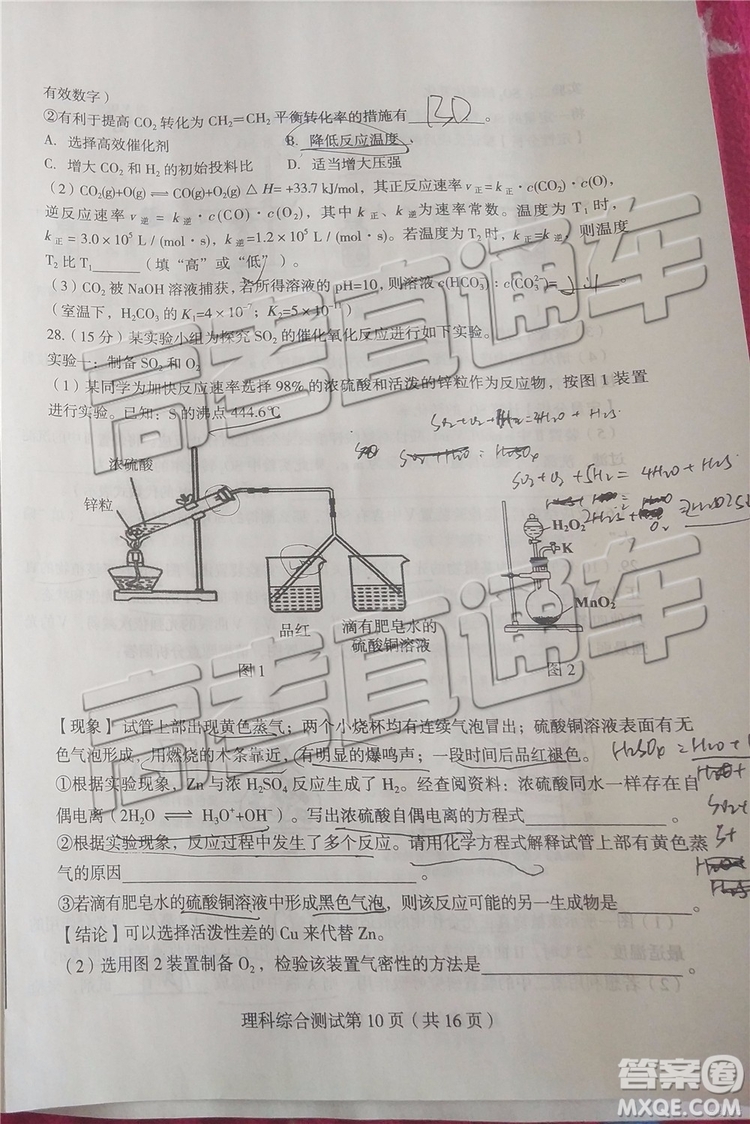 有效数字）
②有利于提高 CO₂ 转化为 CH₂=CH₂ 平衡转化率的措施有 BD 。
A．选择高效催化剂 B．降低反应温度
C．增大 CO₂ 和 H₂ 的初始投料比 D．适当增大压强
（2）CO₂(g)+O(g) ⇌ CO(g)+O₂(g) △H= +33.7 kJ/mol，其正反应速率 v正=k正·c(CO₂)·c(O)，
逆反应速率 v逆= k逆·c(CO)·c(O₂)，其中 k正、k逆为速率常数。温度为 T₁ 时，
k正= 3.0×10⁵ L / (mol·s)，k逆=1.2×10⁵ L / (mol·s)。若温度为 T₂ 时，k正= k逆，则温度
T₂ 比 T₁______（填“高”或“低”）。
（3）CO₂ 被 NaOH 溶液捕获，若所得溶液的 pH=10，则溶液 c(HCO₃⁻)：c(CO₃²⁻)=
（室温下，H₂CO₃ 的 K₁=4×10⁻⁷；K₂=5×10⁻¹¹）
28.（15 分）某实验小组为探究 SO₂ 的催化氧化反应进行如下实验。
实验一：制备 SO₂ 和 O₂
（1）某同学为加快反应速率选择 98% 的浓硫酸和活泼的锌粒作为反应物，按图 1 装置
进行实验。已知：S 的沸点 444.6℃
SO₂+O₂+5H₂=4H₂O+H₂S
浓硫酸
锌粒
品红
滴有肥皂水的
硫酸铜溶液
图 1
H₂O₂
K
MnO₂
图 2
【现象】试管上部出现黄色蒸气；两个小烧杯均有连续气泡冒出；硫酸铜溶液表面有无
色气泡形成，用燃烧的木条靠近，有明显的爆鸣声；一段时间后品红褪色。
①根据实验现象，Zn 与浓 H₂SO₄ 反应生成了 H₂。经查阅资料：浓硫酸同水一样存在自
偶电离（2H₂O ⇌ H₃O⁺+OH⁻）。写出浓硫酸自偶电离的方程式______。
②根据实验现象，反应过程中发生了多个反应。请用化学方程式解释试管上部有黄色蒸
气的原因______。
③若滴有肥皂水的硫酸铜溶液中形成黑色气泡，则该反应可能的另一生成物是______。
【结论】可以选择活泼性差的 Cu 来代替 Zn。
（2）选用图 2 装置制备 O₂，检验该装置气密性的方法是______。
理科综合测试第 10 页（共 16 页）
高考直通车
高考直通车
答案圈
MXQE.COM